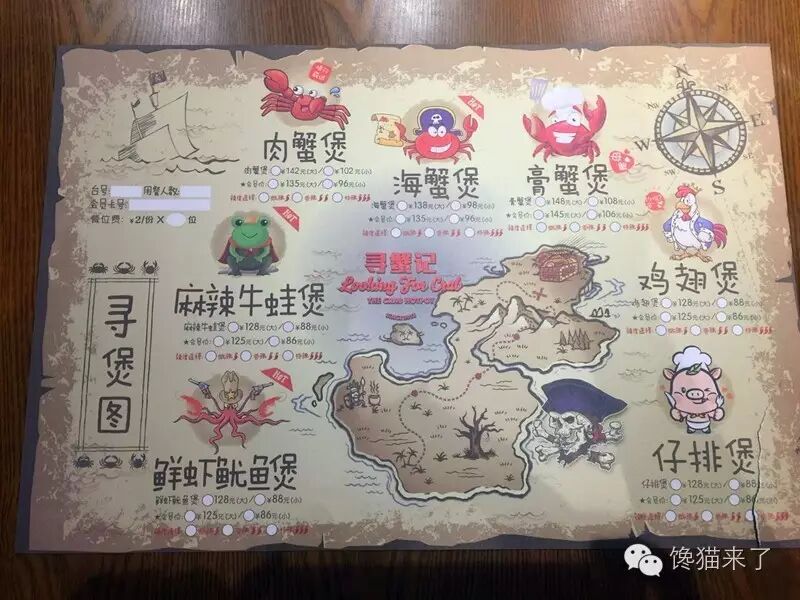 肉蟹煲
肉蟹煲 ¥142元(大)/ ¥102元(小)
★会员价: ¥135元(大)/ ¥96元(小)
HOT
海蟹煲
海蟹煲 ¥138元(大)/ ¥98元(小)
★会员价: ¥135元(大)/ ¥96元(小)
膏蟹煲
膏蟹煲 ¥148元(大)/ ¥108元(小)
★会员价: ¥145元(大)/ ¥106元(小)
N
NE
E
SE
S
SW
W
NW
台号: 用餐人数:
会员卡号:
餐位费: ¥2/份 X 位
HOT
麻辣牛蛙煲
麻辣牛蛙煲 ¥128元(大)/ ¥88元(小)
★会员价: ¥125元(大)/ ¥86元(小)
寻蟹记
Looking For Crab
THE CRAB HOTPOT
鸡翅煲
鸡翅煲 ¥128元(大)/ ¥88元(小)
★会员价: ¥125元(大)/ ¥86元(小)
寻煲图
HOT
鲜虾鱿鱼煲
鲜虾鱿鱼煲 ¥128元(大)/ ¥88元(小)
★会员价: ¥125元(大)/ ¥86元(小)
仔排煲
仔排煲 ¥128元(大)/ ¥88元
★会员价: ¥125元(大)/ ¥86元
馋猫来了